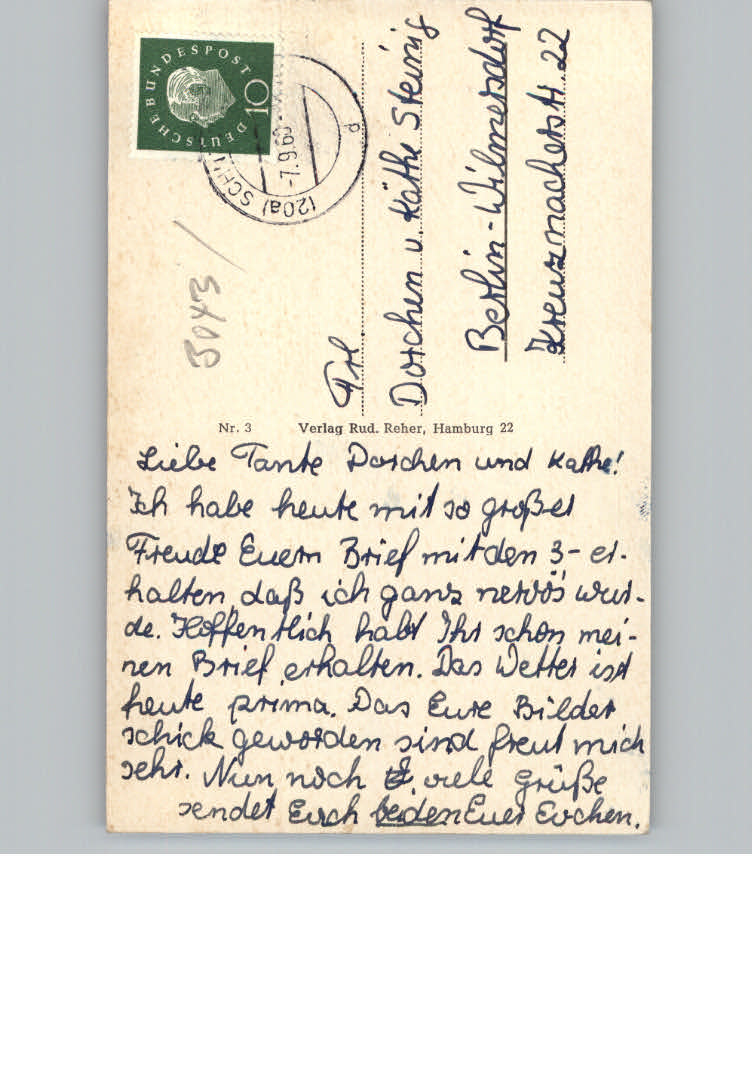 DEUTSCHE BUNDESPOST
10
(20a) SCH
-7.9.60-
d
5043 /
Frl.
Dorchen u. Käthe Steinig
Berlin-Wilmersdorf
Kreuznacherstr. 22
Nr. 3 Verlag Rud. Reher, Hamburg 22
Liebe Tante Dorchen und Kathe!
Ich habe heute mit so großer
Freude Euern Brief mit den 3- er-
halten, daß ich ganz nervös wur-
de. Hoffentlich habt Ihr schon mei-
nen Brief erhalten. Das Wetter ist
heute prima. Das Eure Bilder
schick geworden sind freut mich
sehr. Nun noch viele Grüße
sendet Euch beiden Euer Evchen.